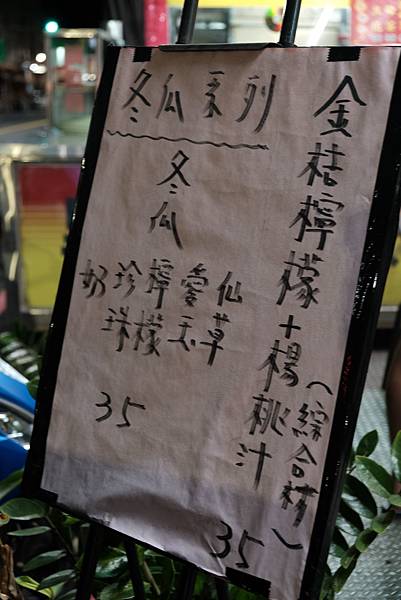 金桔檸檬+楊桃汁
(綜合)
35
冬瓜系列
冬瓜
奶珍檸愛仙
珠檬玉草
35